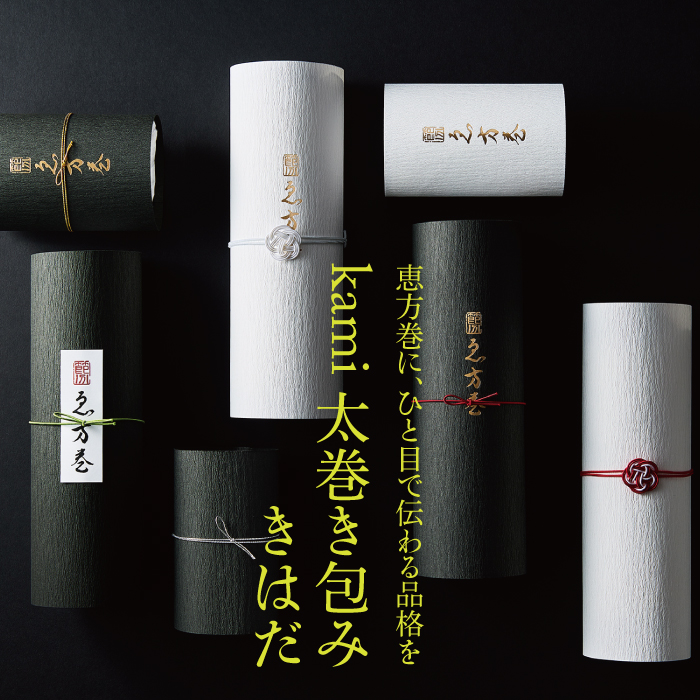 恵方巻に、ひと目で伝わる品格を
kami 太巻き包み
きはだ
恵方巻
恵方
恵方巻
恵方巻
恵方巻